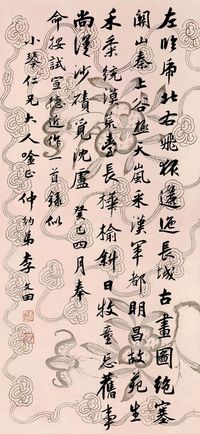 左帝北右飛狐邐迤長城古畫圖絕塞
關山秦上谷極天嵐采漢軍都明昌故苑生
禾黍統漠長榆斜日牧童忘舊事
尚沙磧覓沈盧 癸巳四月奉
命按試宣德近作一首錄似
小琴仁兄大人唫正 仲約弟李文田